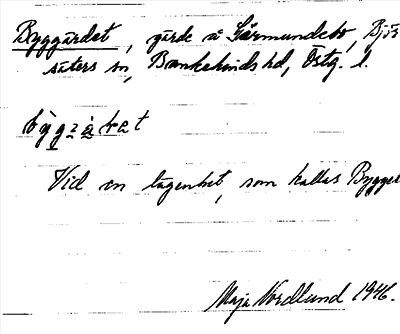 Byggärdet, gärde å Gärmundebo, Björ
säters sn, Bankekinds hd, Östg. l.
Vid en lägenhet, som kallas Bygget
Maja Nordlund 1946.